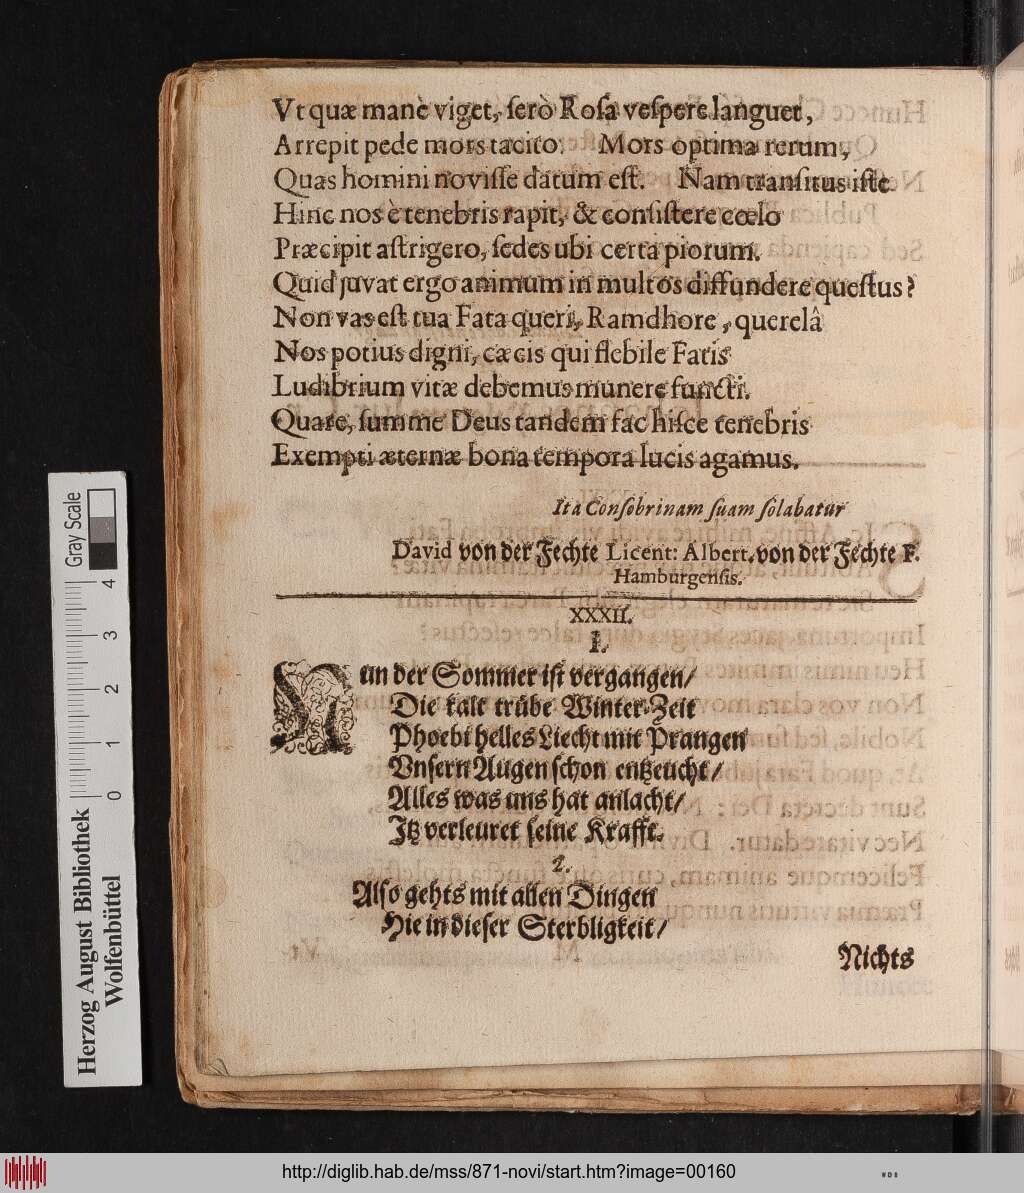 Vt quæ manè viget, serò Rosa vespere languet,
Arrepit pede mors tacito. Mors optima rerum,
Quas homini novisse datum est. Nam transitus iste
Hinc nos è tenebris rapit, & consistere cœlo
Præcipit astrigero, sedes ubi certa piorum.
Quid juvat ergo animum in multos diffundere questus?
Non vas est tua Fata queri, Ramdhore, querelâ
Nos potius digni, cæcis qui flebile Fatis
Ludibrium vitæ debemus munere functi.
Quare, summe Deus tandem fac hisce tenebris
Exempti æternæ bona tempora lucis agamus.
Ita Consobrinam suam solabatur
David von der Fechte Licent: Albert. von der Fechte F.
Hamburgensis.
XXXII.
I.
Nun der Sommer ist vergangen/
Die kalt trübe Winter-Zeit
Phoebi helles Liecht mit Prangen
Vnsern Augen schon entzeucht/
Alles was uns hat anlacht/
Itz verleuret seine Krafft.
2.
Also gehts mit allen Dingen
Hie in dieser Sterbligkeit/
Nichts
Gray Scale
4
3
2
1
0
Herzog August Bibliothek
Wolfenbüttel
http://diglib.hab.de/mss/871-novi/start.htm?image=00160